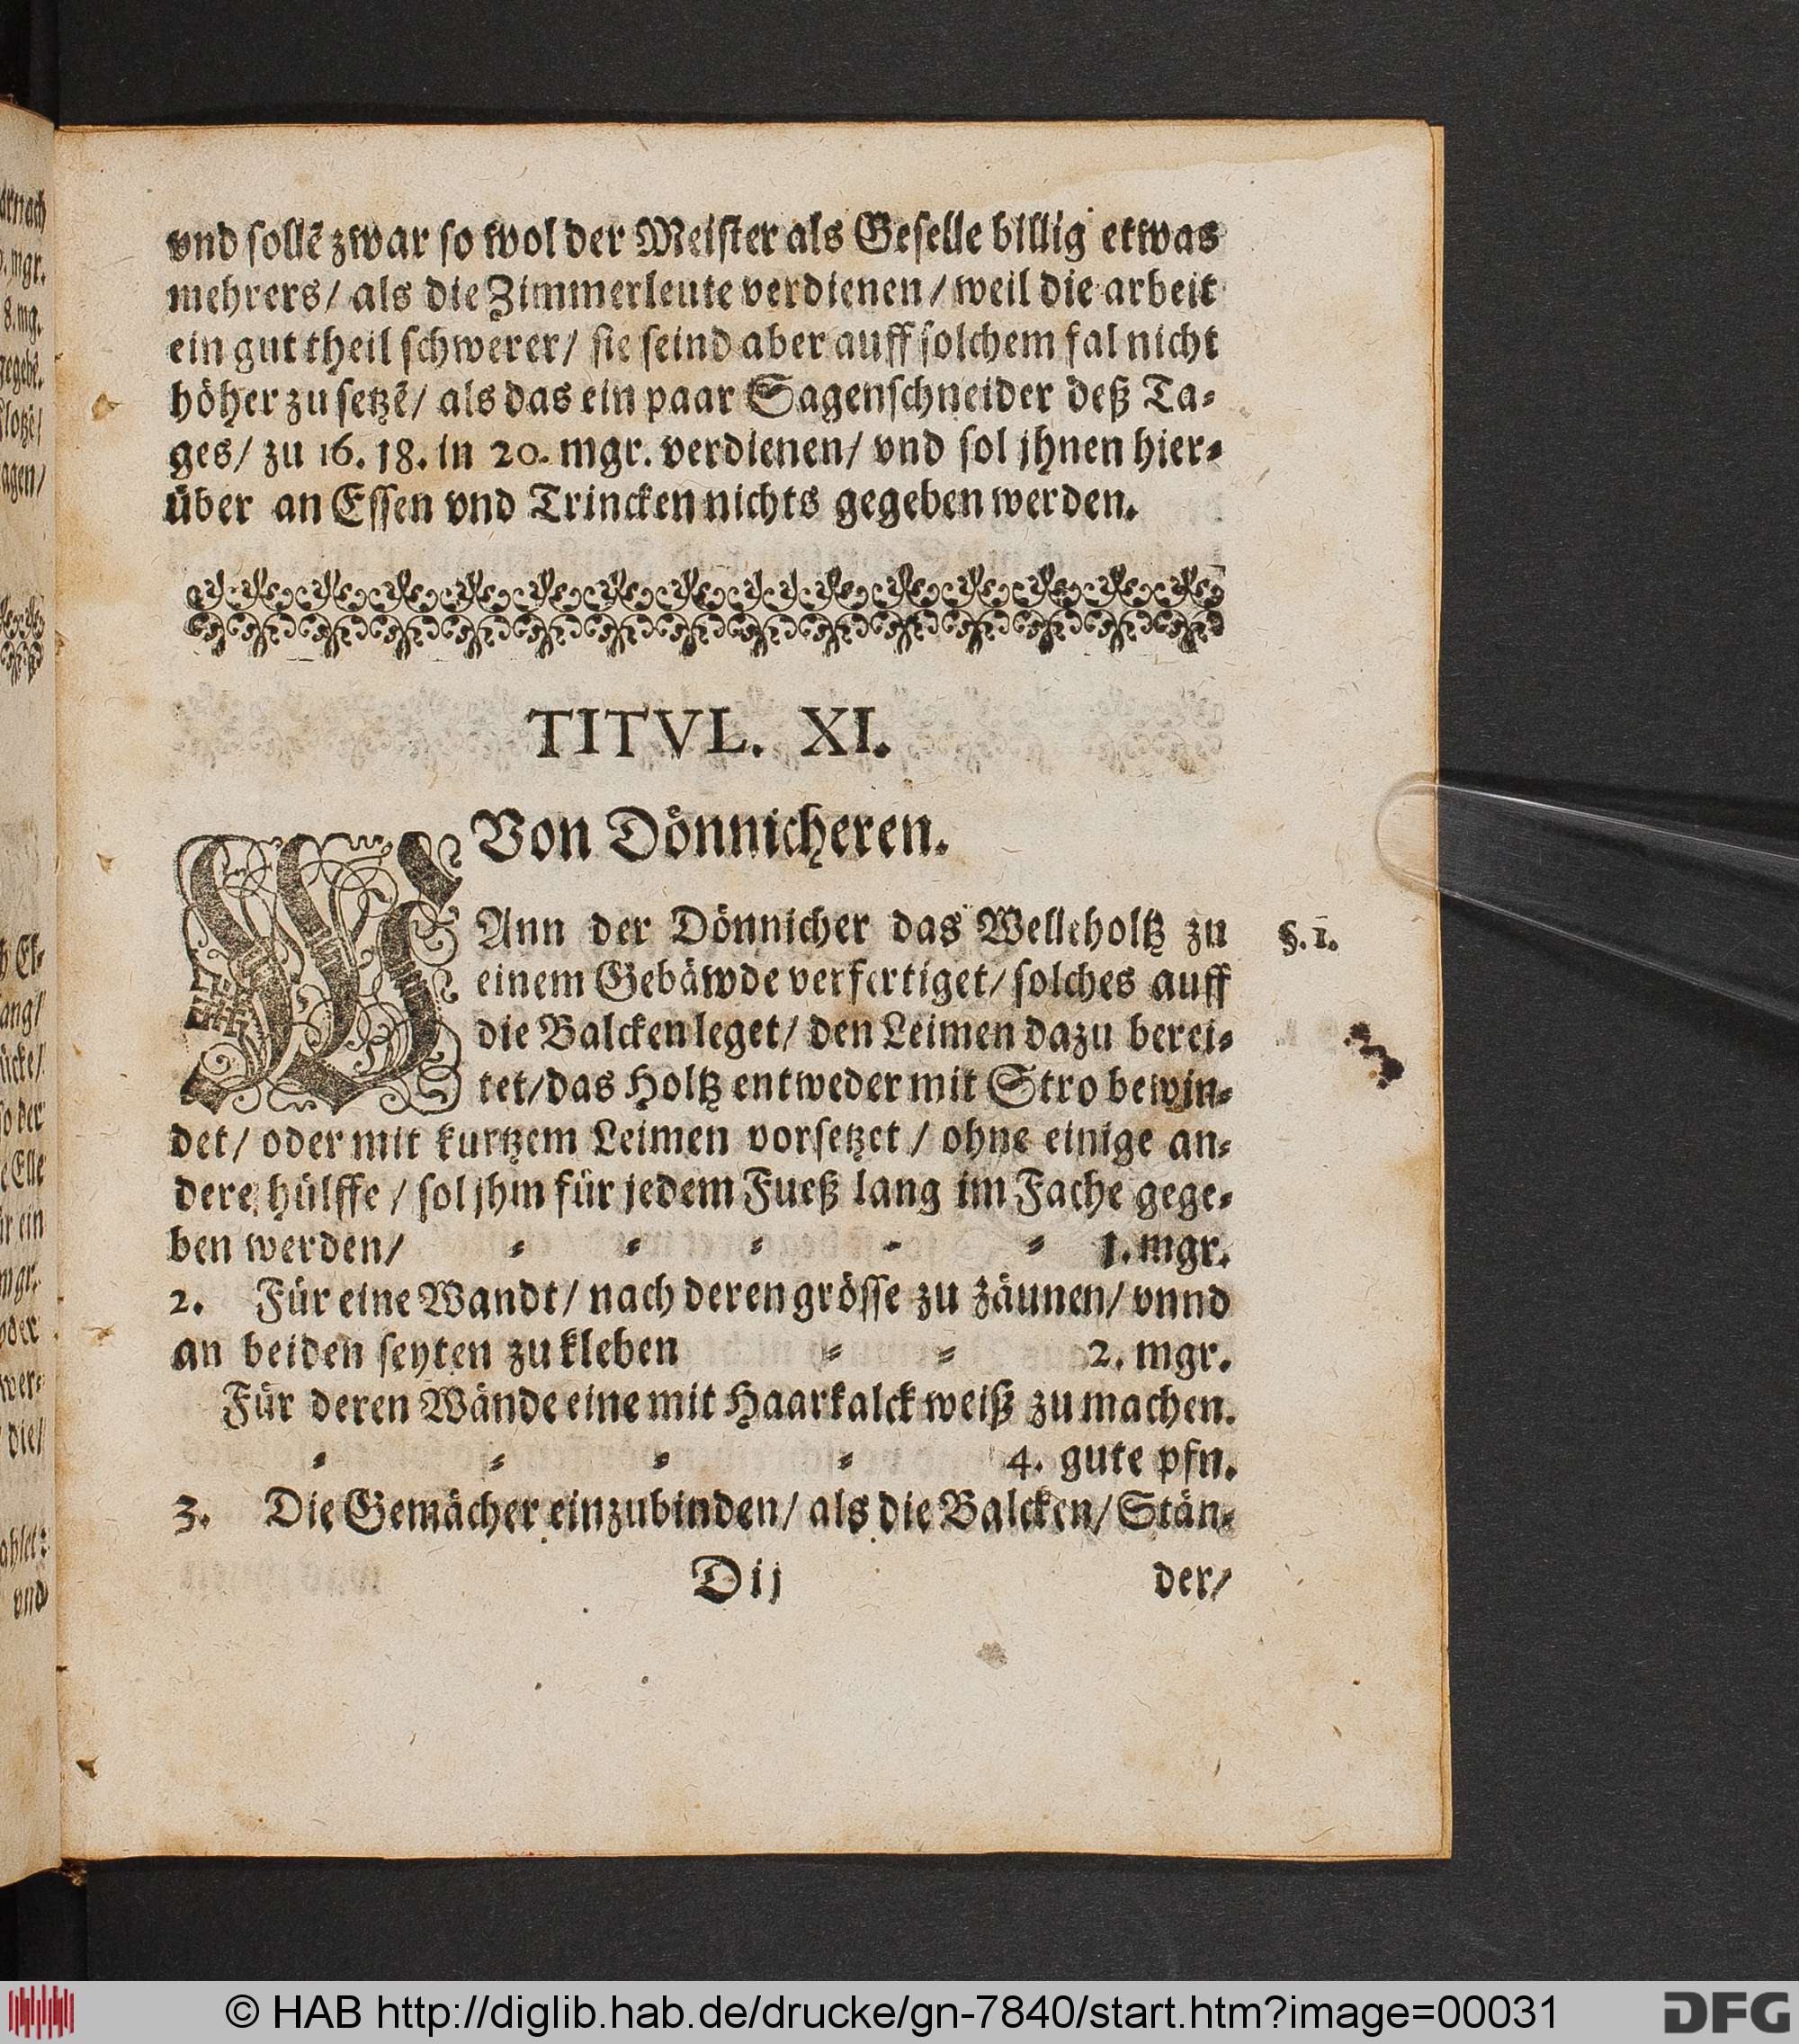 vnd sollẽ zwar so wol der Meister als Geselle billig etwas
mehrers/ als die Zimmerleute verdienen/ weil die arbeit
ein gut theil schwerer/ sie seind aber auff solchem fal nicht
höher zu setzẽ/ als das ein paar Sagenschneider deß Ta-
ges/ zu 16. 18. in 20. mgr. verdienen/ vnd sol jhnen hier-
über an Essen vnd Trincken nichts gegeben werden.
TITVL. XI.
Von Dönnicheren.
WAnn der Dönnicher das Welleholtz zu
§. 1.
einem Gebäwde verfertiget/ solches auff
die Balcken leget/ den Leimen dazu berei-
tet/ das Holtz entweder mit Stro bewin-
det/ oder mit kurtzem Leimen vorsetzet/ ohne einige an-
dere hülffe/ sol jhm für jedem Fueß lang im Fache gege-
ben werden/ - - - - - 1. mgr.
2. Für eine Wandt/ nach deren grösse zu zäunen/ vnnd
an beiden seyten zu kleben - - 2. mgr.
Für deren Wände eine mit Haarkalck weiß zu machen.
- - - - 4. gute pfn.
3. Die Gemächer einzubinden/ als die Balcken/ Stän-
Dij der/
arnach
mgr.
8. mg.
gegebẽ.
agen/
El-
ang/
ücke/
so der
e Elle
ür ein
mgr.
oder
wer-
die/
ahlet:
vnd
© HAB http://diglib.hab.de/drucke/gn-7840/start.htm?image=00031
DFG